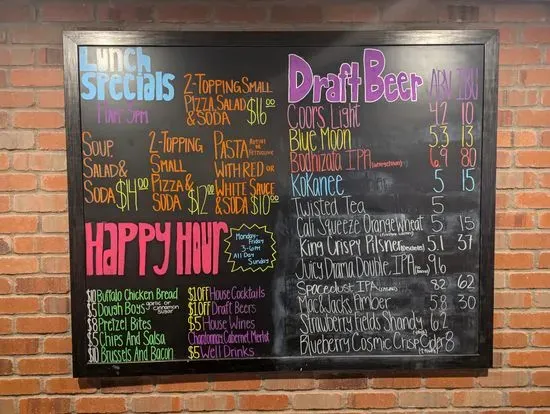 Lunch Specials
11AM-3PM
2-Topping Small
Pizza, Salad
& Soda $16.00
Soup,
Salad &
Soda $14.00
2-Topping
Small
Pizza &
Soda $12.00
Pasta
With Red or
White Sauce
& Soda $10.00
Happy Hour
Monday-
Friday
3-6PM
All Day
Sunday
$10 Buffalo Chicken Bread
$5 Dough Boys garlic or cinnamon sugar
$8 Pretzel Bites
$5 Chips And Salsa
$10 Brussels And Bacon
$1 Off House Cocktails
$1 Off Draft Beers
$5 House Wines
Chardonnay, Cabernet, Merlot
$5 Well Drinks
Draft Beer ABV IBU
Coors Light 4.2 10
Blue Moon 5.3 13
Bodhizafa IPA (georgetown) 6.9 80
Kokanee 5 15
Twisted Tea 5
Cali Squeeze Orange Wheat 5 15
King Crispy Pilsner (Deschutes) 5.1 37
Juicy Drama Double IPA 9.6
Spacedust IPA 8.2 62
Mac & Jacks Amber 5.8 30
Strawberry Fields Shandy 6.2
Blueberry Cosmic Crisp Cider 8